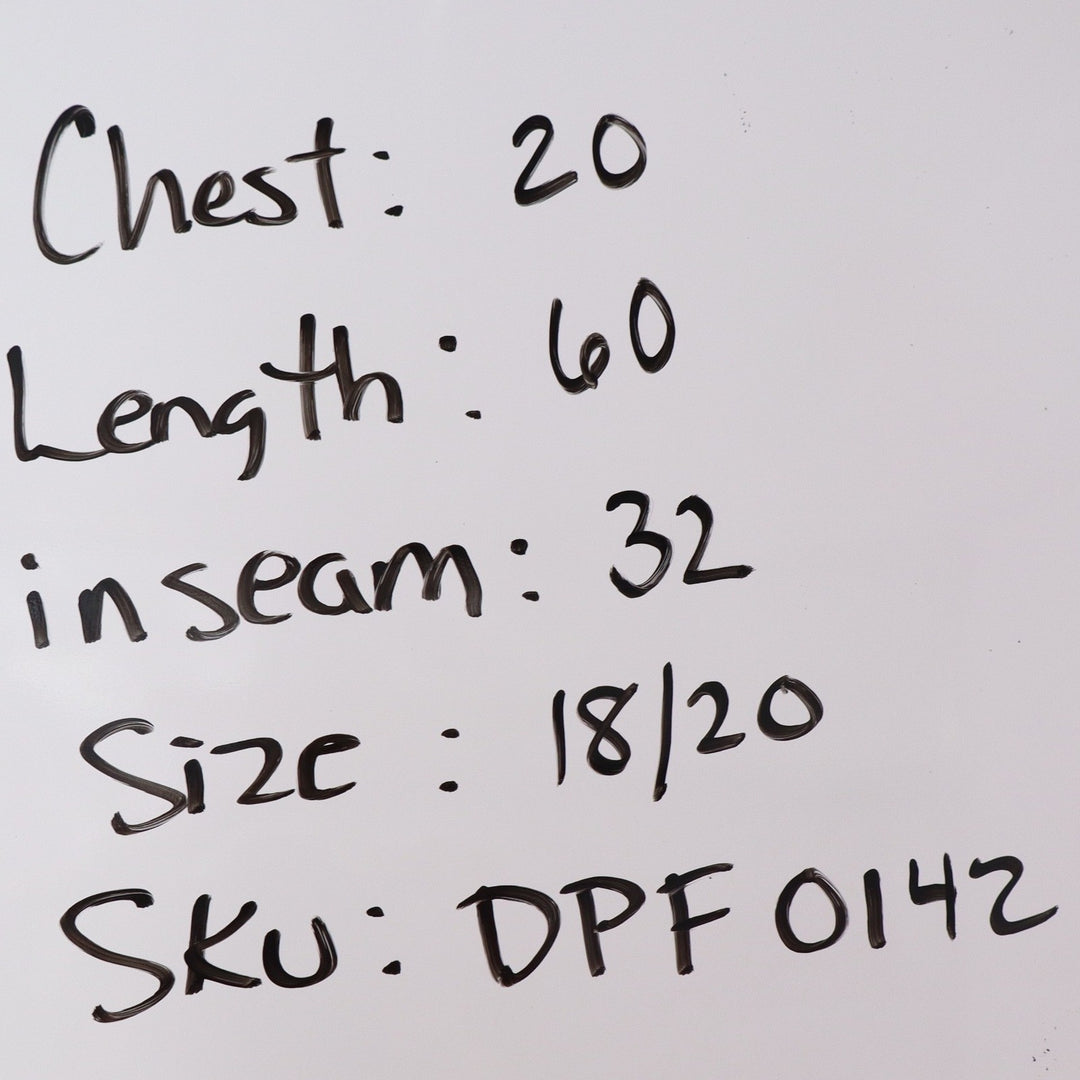 Chest: 20
Length: 60
inseam: 32
Size: 18/20
SKU: DPF 0142